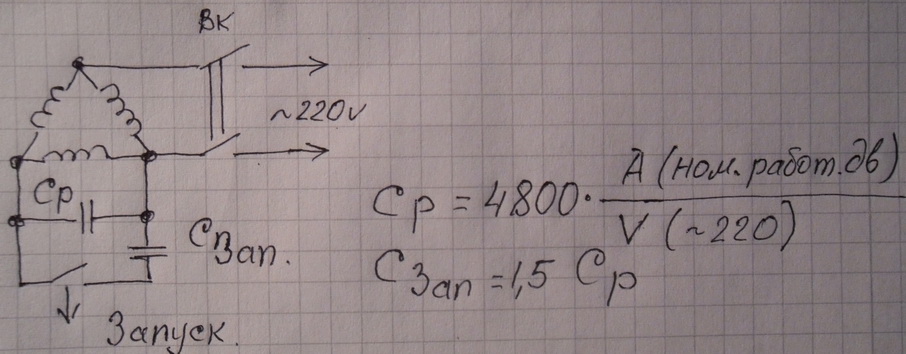 ВК
~220v
Ср
Сзап.
Запуск.
Ср = 4800 · А (ном. работ. дв) / V (~220)
Сзап = 1,5 Ср